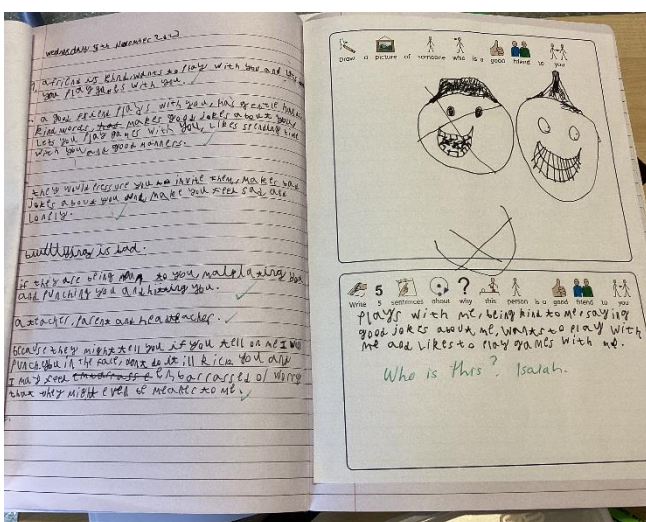 wednesday 8th November 202
a friend is kind, wants to play with you and
you play games with you.
a good friend plays with you, has gentle hands
kind words, makes good jokes about you
lets you play games with you, likes spending time
with you and good manners.
they would pressure you to invite them, makes bad
jokes about you and make you feel sad and
lonely.
bullying is bad.
if they are being to you,
and punching you and hitting you.
a teacher, parent and headteacher.
because they might tell you if you tell on me I will
punch you in the face, dont do it ill kick you and
I may feel embarrassed or worry
that they might even be meaner to me.
Draw a picture of someone who is a good friend to you
Write 5 sentences about why this person is a good friend to you
plays with me, being kind to me, saying
good jokes about me, wants to play with
me and likes to play games with me.
Who is this? Isaiah.